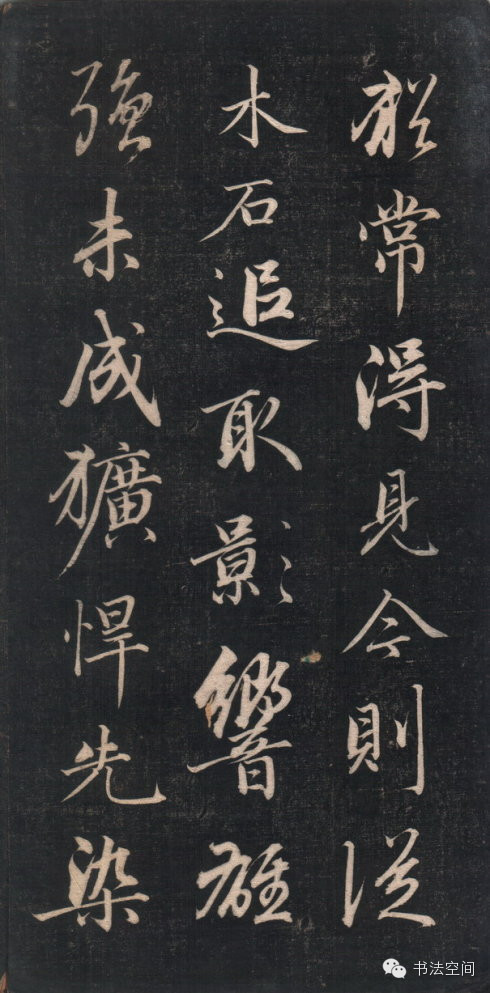 常得見今則從
木石追取影響雄
強未成獷悍先染
书法空间